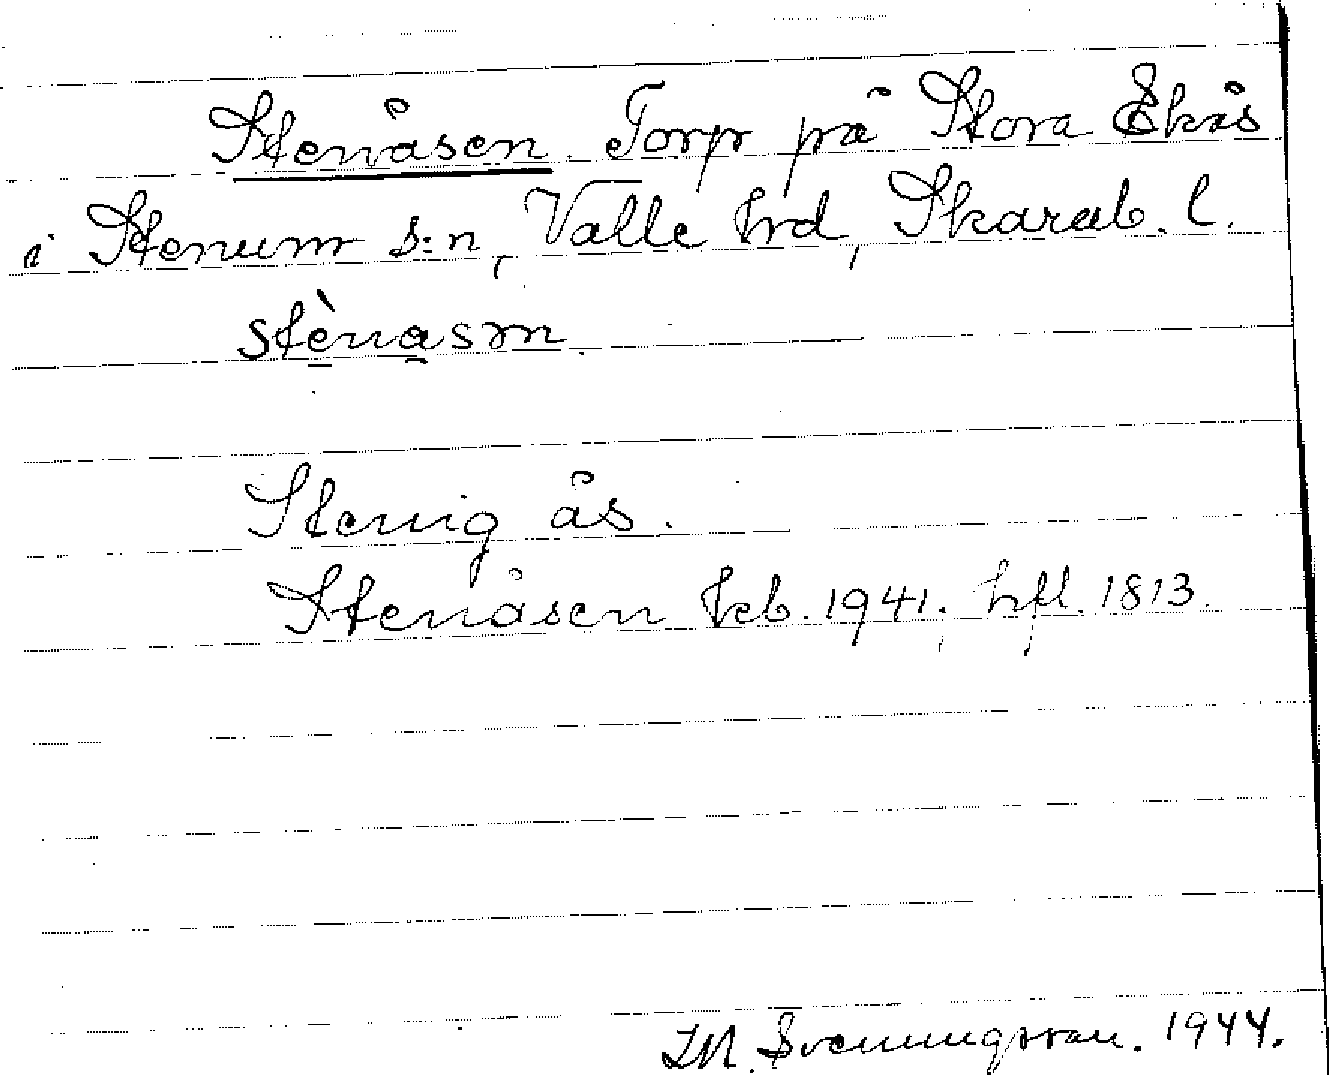 Stenåsen Torp på Stora Ekås
i Stenum s:n, Valle hrd, Skarab. l.
stènasm
Stenig ås.
Stenåsen kb. 1941. hfl. 1813.
M. Svenningsson. 1944.